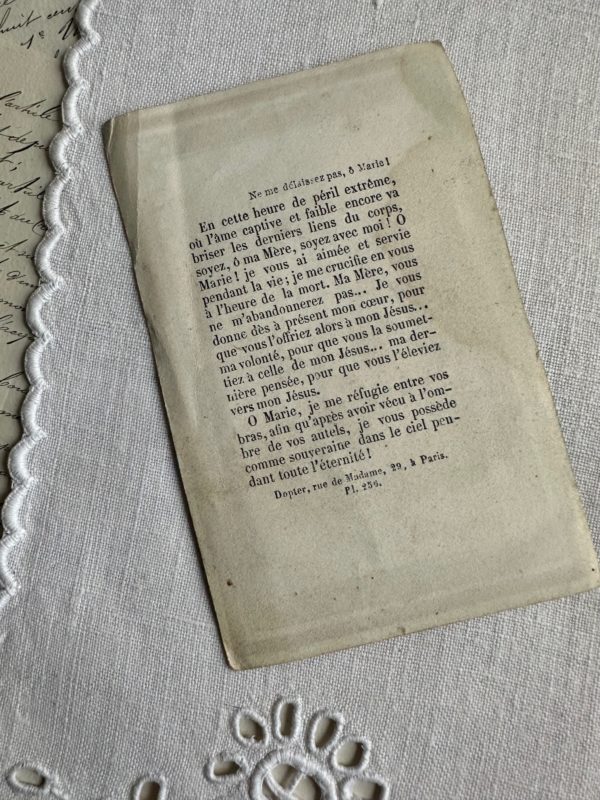 Ne me délaissez pas, ô Marie!
En cette heure de péril extrême,
où l'âme captive et faible encore va
briser les derniers liens du corps,
soyez, ô ma Mère, soyez avec moi! O
Marie! je vous ai aimée et servie
pendant la vie; je me crucifie en vous
à l'heure de la mort. Ma Mère, vous
ne m'abandonnerez pas... Je vous
donne dès à présent mon cœur, pour
que vous l'offriez alors à mon Jésus...
ma volonté, pour que vous la soumet-
tiez à celle de mon Jésus... ma der-
nière pensée, pour que vous l'éleviez
vers mon Jésus.
O Marie, je me réfugie entre vos
bras, afin qu'après avoir vécu à l'om-
bre de vos autels, je vous possède
comme souveraine dans le ciel pen-
dant toute l'éternité!
Dopter, rue de Madame, 29, à Paris.
Pl. 256.